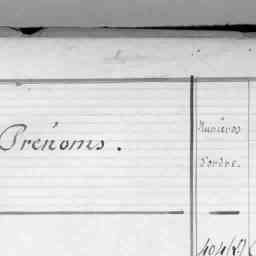 Prénoms.
Numéros
d'ordre.